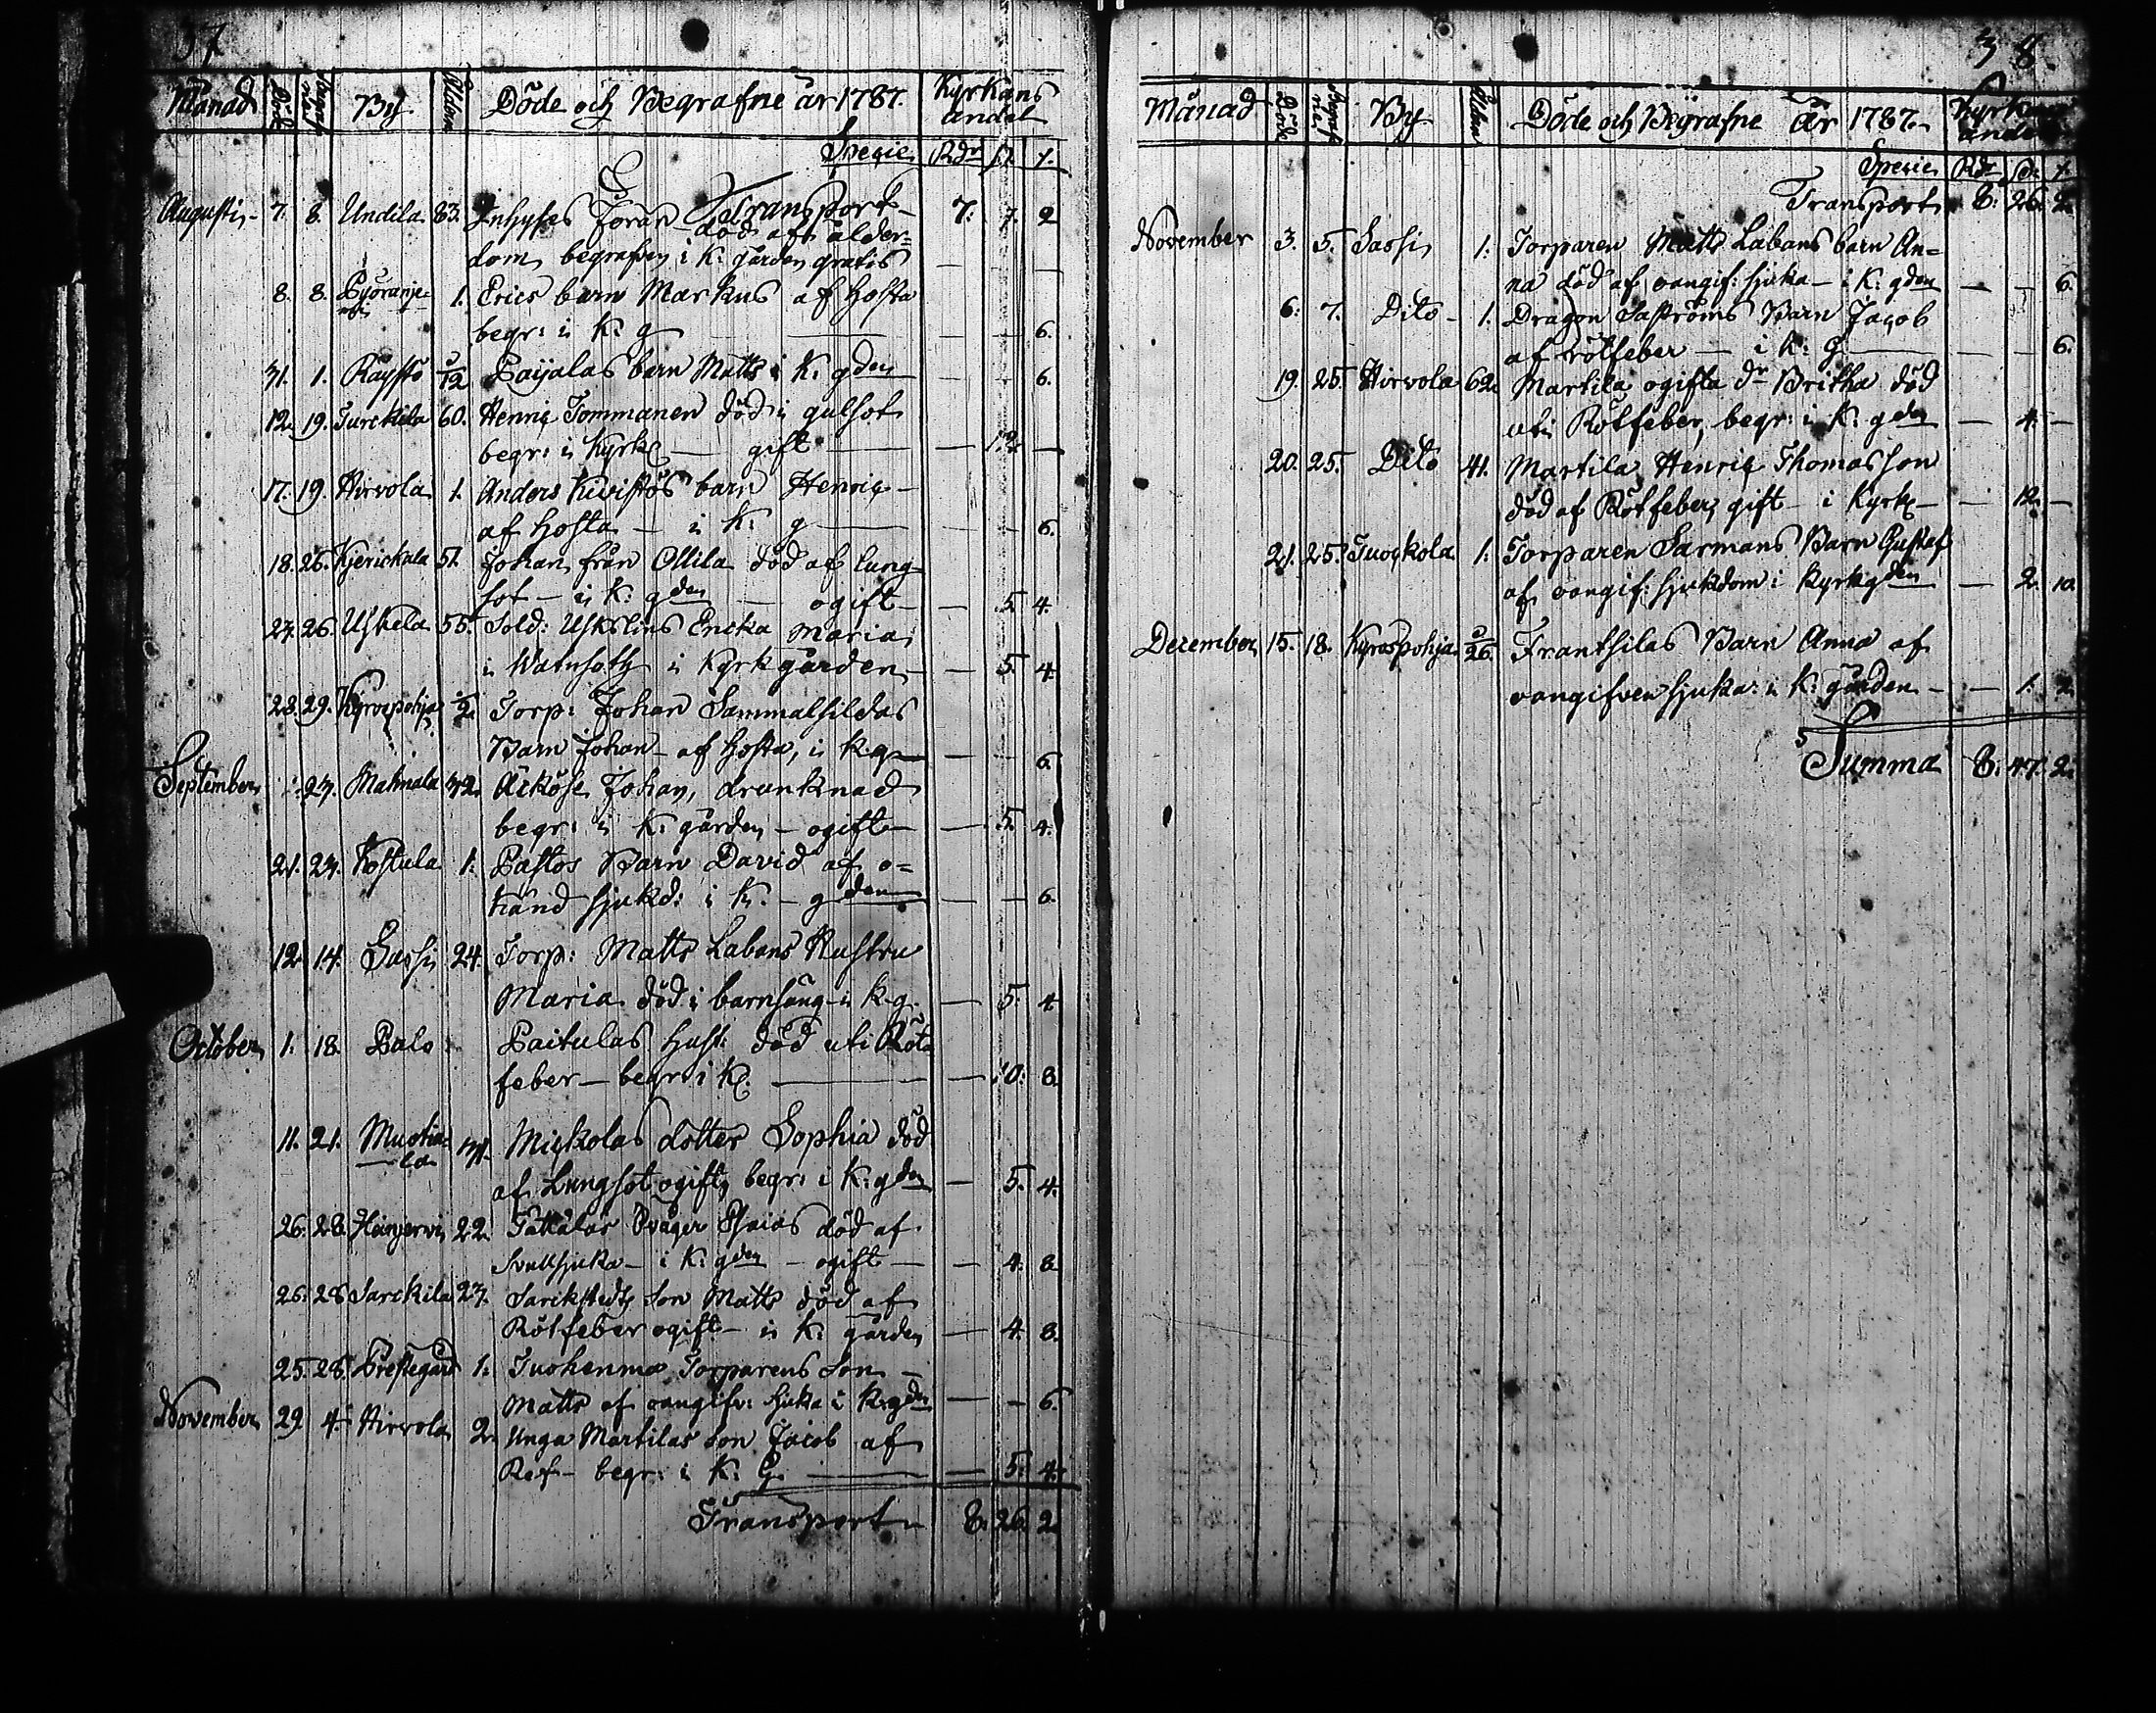 37
Månad Döde Begrafne By Åldren Döde och Begrafne år 1787. Kyrkans andel
Specie Rdr ſl. r.
Transport 7: 7. 2
Augusti 7. 8. Undila 83. Inhyses Jöran död af ålder=
dom begrafven i K: gården gratis — —
8. 8. 1. Erics barn Markus af hosta
begr: i K: g — — 6.
31. 1. Raysto Paijalas barn Matts i K: gden — — 6.
12. 19. Turckila 60. Henric Tommanen död i gulsot
begr: i Kyrk — gift — 12. —
17. 19. Hirvola 1. Anders Kivistös barn Henric
af hosta — i K: g — — 6.
18. 26. Kjerickala 51. Johan från Ollila död af lung
sot — i K: gden — ogift — 5. 4.
27. 26. Uskela 55. Sold: Uskelins Encka Maria
i Watnsoth i Kyrkgården — 5. 4
28. 29. Kyrospohja Torp: Johan Sammalsildas
Barn Johan af hosta, i k.g — — 6
September 27. Mahnala 32. Äiköse Johan, drunknad
begr: i K: gården — ogift — 5. 4.
21. 24. Kostula 1. Pastos Barn David af o=
känd sjukd: i K. — gden — — 6.
12. 14. Sassi 24. Torp: Matts Labans Hustru
Maria död i barnsäng i k.g. — 5. 4
October 1. 18. Palo Paitulas Hust: död uti Röt
feber — begr: i K. — 10. 8.
11. 21. Mustia=
la Mickolas dotter Sophia död
af Lungsot ogift, begr: i K: gden — 5. 4.
26. 28. Heinjervi 22. Tättälas Svåger Esaias död af
Svullsjuka — i K: gden — ogift — 4. 8.
26. 28. Sarckila 27. Sarckstedts Son Matts död af
Rötfeber ogift — i K: gården — 4. 8.
25. 28. Prestegård 1. Tuokenma Torparens Son —
Matts af oangifv: sjuka i K: gden — — 6.
November 29. 4. Hirvola 2. Unga Martilas Son Jacob af
Ref — begr: i K: G. — 5. 4.
Transport 8. 26. 2.
38.
Månad Döde Begrafne By Åldren Döde och Begrafne År 1787. Kyrkans andel
Specie Rdr ſl. r
Transport 8: 26. 2.
November 3. 5. Sassi 1: Torparen Matts Labans barn An=
na död af oangif: sjuka — i K: gden — — 6.
6. 7. Dito — 1. Dragon Saströms Barn Jacob
af rötfeber — i k: g — — 6.
19. 25. Hirvola 62. Martila ogifta dr Britha död
uti Rötfeber, begr: i K: gden — 4. —
20. 25. Dito 41. Martila, Henric Thomasson
död af Rötfeber, gift — i Kyrk — 12. —
21. 25. Tuockola 1: Torparen Sarmans Barn Gustaf
af oangif: sjukdom i Kyrkgden — 2. 10.
December 15. 18. Kyrospohja Frantsilas Barn Anna af
oangifven sjuka: i K: gården — — 1. 2.
Summa 8: 47. 2.